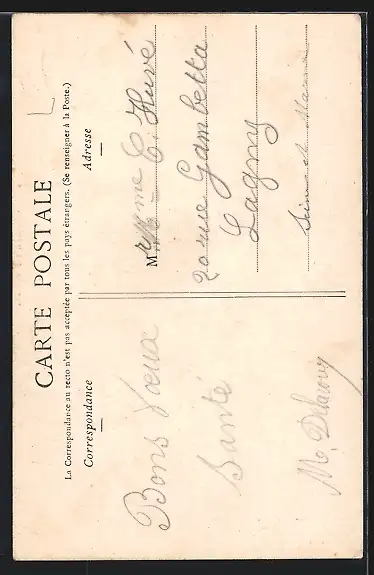 CARTE POSTALE
La Correspondance au recto n'est pas acceptée par tous les pays étrangers. (Se renseigner à la Poste.)
Correspondance
Bons Vœux
Santé
M. Delacour
Adresse
Mme C. Huvé
20 rue Gambetta
Lagny
Seine et Marne